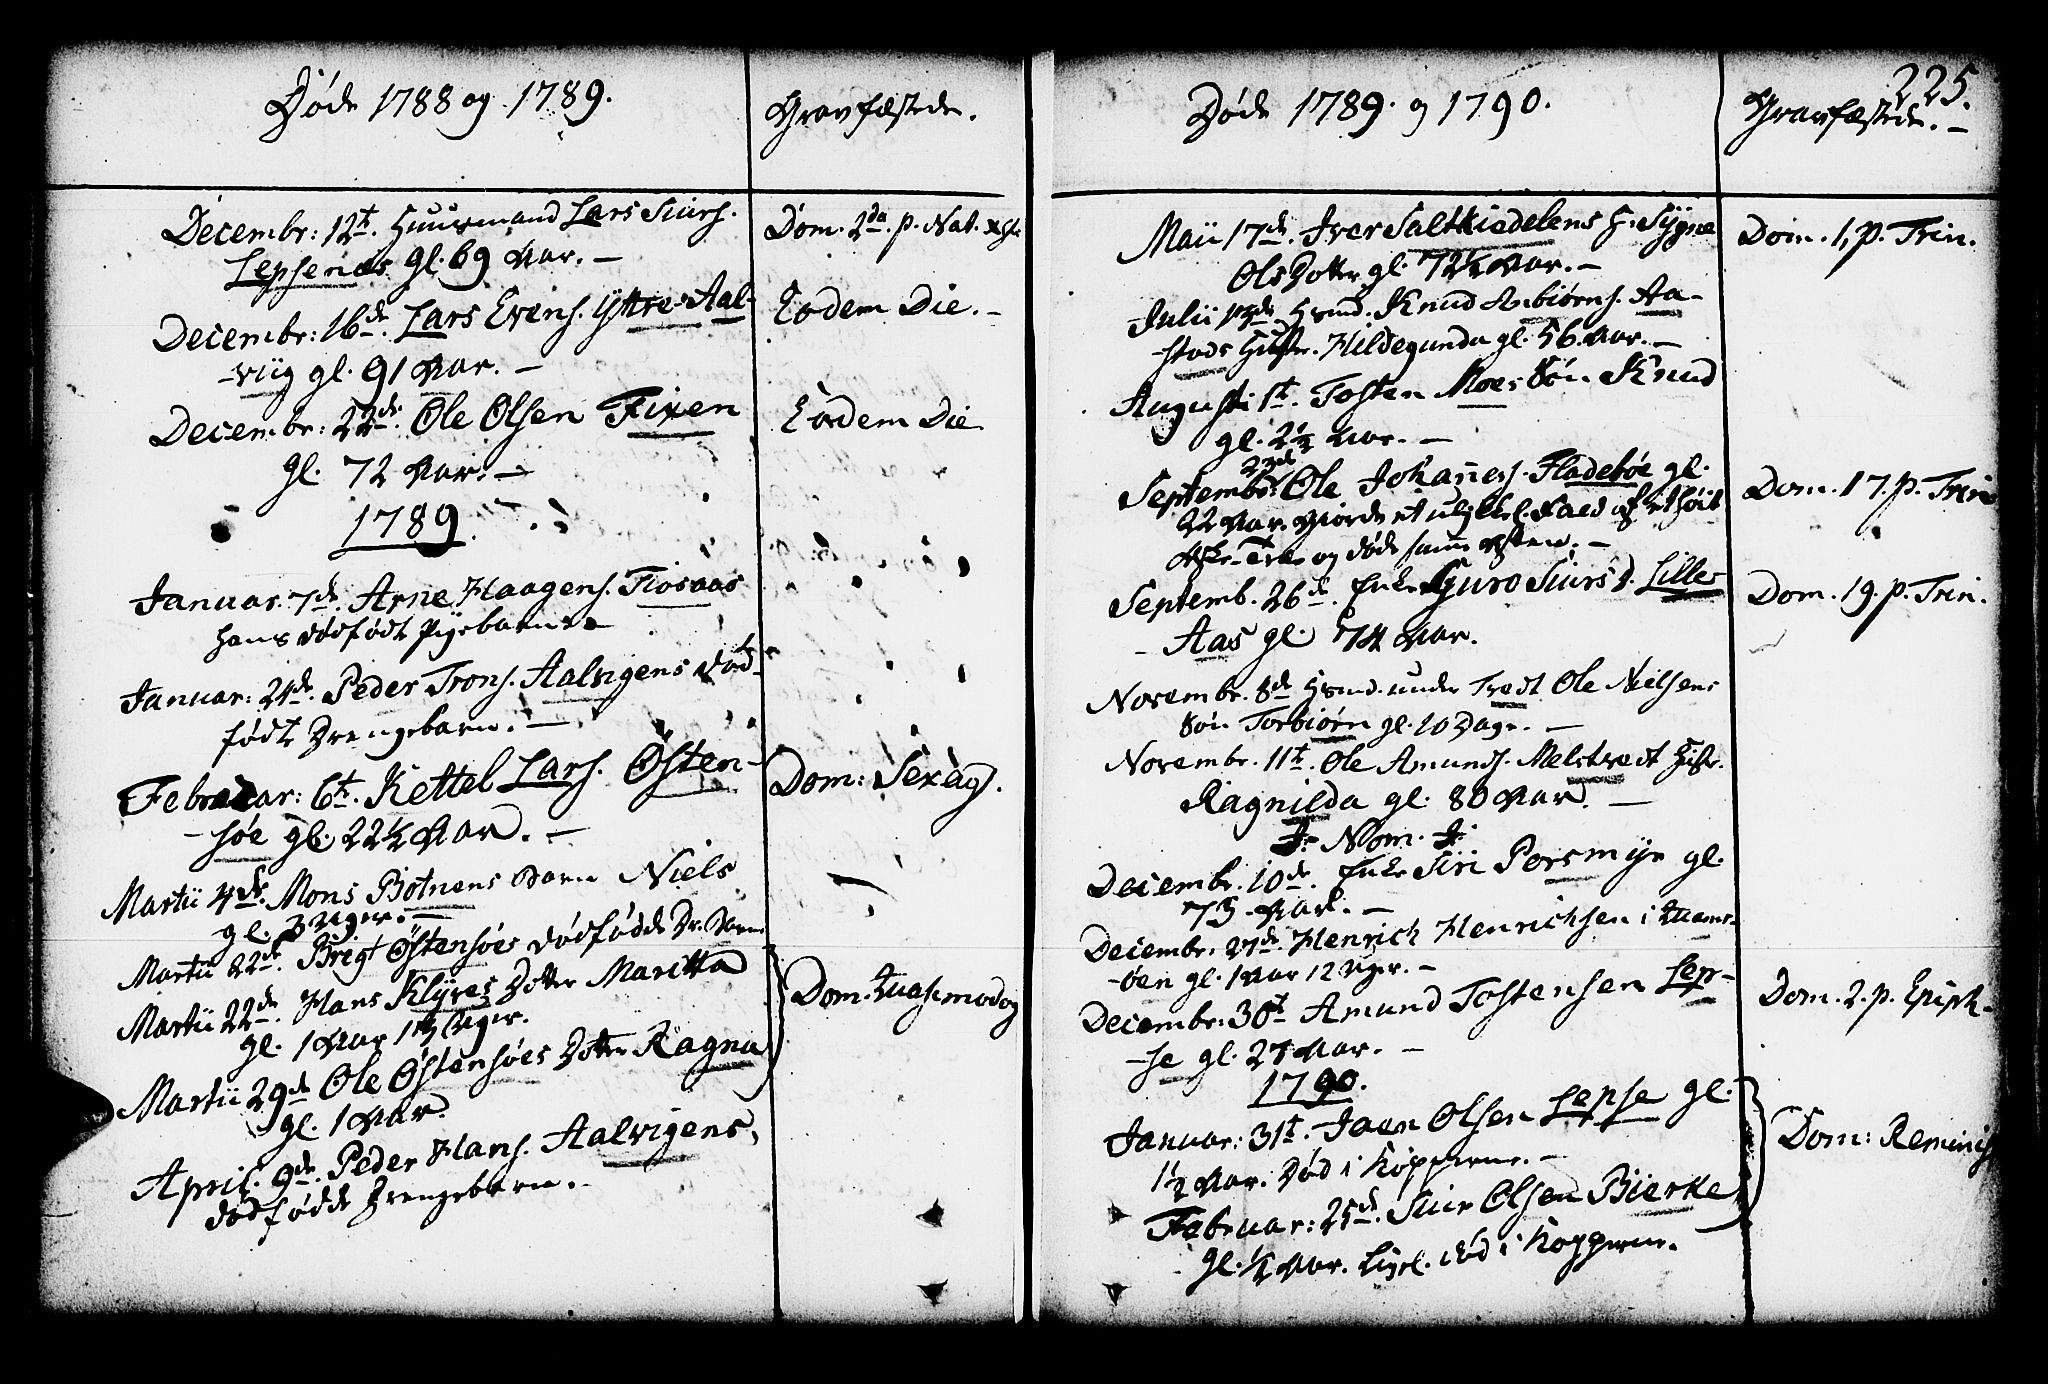 Døde 1788 og 1789.
Gravfæstede.
Decembr: 12t. Huusmand Lars Siurs.
Lepsenæs gl. 69 Aar. —
Dom. 2da. p. Nat. Xsti
Decembr: 16de. Lars Evens. Yttre-Aal-
-viig gl. 91 Aar. —
Eodem Die. —
Decembr: 22de. Ole Olsen Fixen
gl. 72 Aar. —
Eodem Die
1789.
Januar. 7de. Arne Haagens. Tiosaas
hans dødfødt Pigebarn. —
Januar: 24de. Peder Trons. Aalvigens død-
fødte Drengebarn. —
Februar: 6t. Kettel Lars. Østen-
-søe gl. 22½ Aar. —
Dom: Sexag.
Martii 4de. Mons Botnens Barn Niels
gl. 3 Uger. —
Martii 22de. Brigt Østensøes dødfødde Dr. Barn
Martii 22de. Hans Klyves Dotter Maritta
gl. 1 Aar Uger.
Dom. Quasimodog
Martii 29de Ole Østensøes Dotter Ragna
gl. 1 Aar.
April. 9de. Peder Hans. Aalvigens,
dødfødde Drengebarn.
225.
Døde 1789. og 1790.
Gravfæstede. —
Maii 17de. Iver Saltkiedelens H. Sygne
Ols Dotter gl. 72½ Aar. —
Dom. 1, p. Trin.
Julii 13de. Hsmd. Knud Anbiørns. Aa-
-stads Hustr. Hildegunda gl. 56. Aar. —
Augusti 1t. Tosten Moes Søn Knud
gl. 2½ Aar. —
23de
Septembr: Ole Johannes. Fladebøe gl.
22 Aar. giorde et ulykkel. Fald af et høit
Aske-Træ og døde samme Aften. —
Dom. 17. p. Trin
Septemb. 26de. Enke Guro Siurs D. Lille-
- Aas gl. 74 Aar.
Dom. 19. p. Trin.
Novembr. 8de Hsmd. under Tvedt Ole Nielsens
Søn Torbiørn gl. 10 Dage. —
Novembr. 11t. Ole Amunds. Melstvedt Hustr.
Ragnilda gl. 80 Aar. —
J. Nom. J.
Decembr. 10de. Enke Siri Porsmyr gl.
73 Aar. —
Decembr. 27de. Henrich Henrichsen i Quams-
-øen gl. 1 Aar 12 Uger. —
Decembr: 30t Amund Tostensen Lep-
-se gl. 27 Aar. —
Dom. 2. p. Epiph.
1790.
Januar: 31t. Joen Olsen Lepse gl.
1½ Aar. Død i Kopperne. —
Dom: Reminisc
Februar: 25de. Siur Olsen Bierke
gl. ½ Aar. Ligel. død i Kopperne.